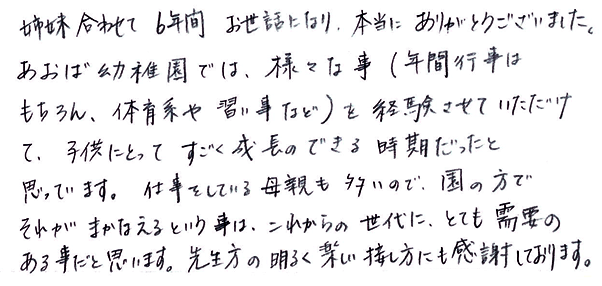 姉妹合わせて6年間お世話になり、本当にありがとうございました。
あおば幼稚園では、様々な事(年間行事は
もちろん、体育系や習い事など)を経験させていただけ
て、子供にとってすごく成長のできる時期だったと
思っています。仕事をしている母親も多いので、園の方で
それがまかなえるという事は、これからの世代に、とても需要の
ある事だと思います。先生方の明るく楽しい接し方にも感謝しております。